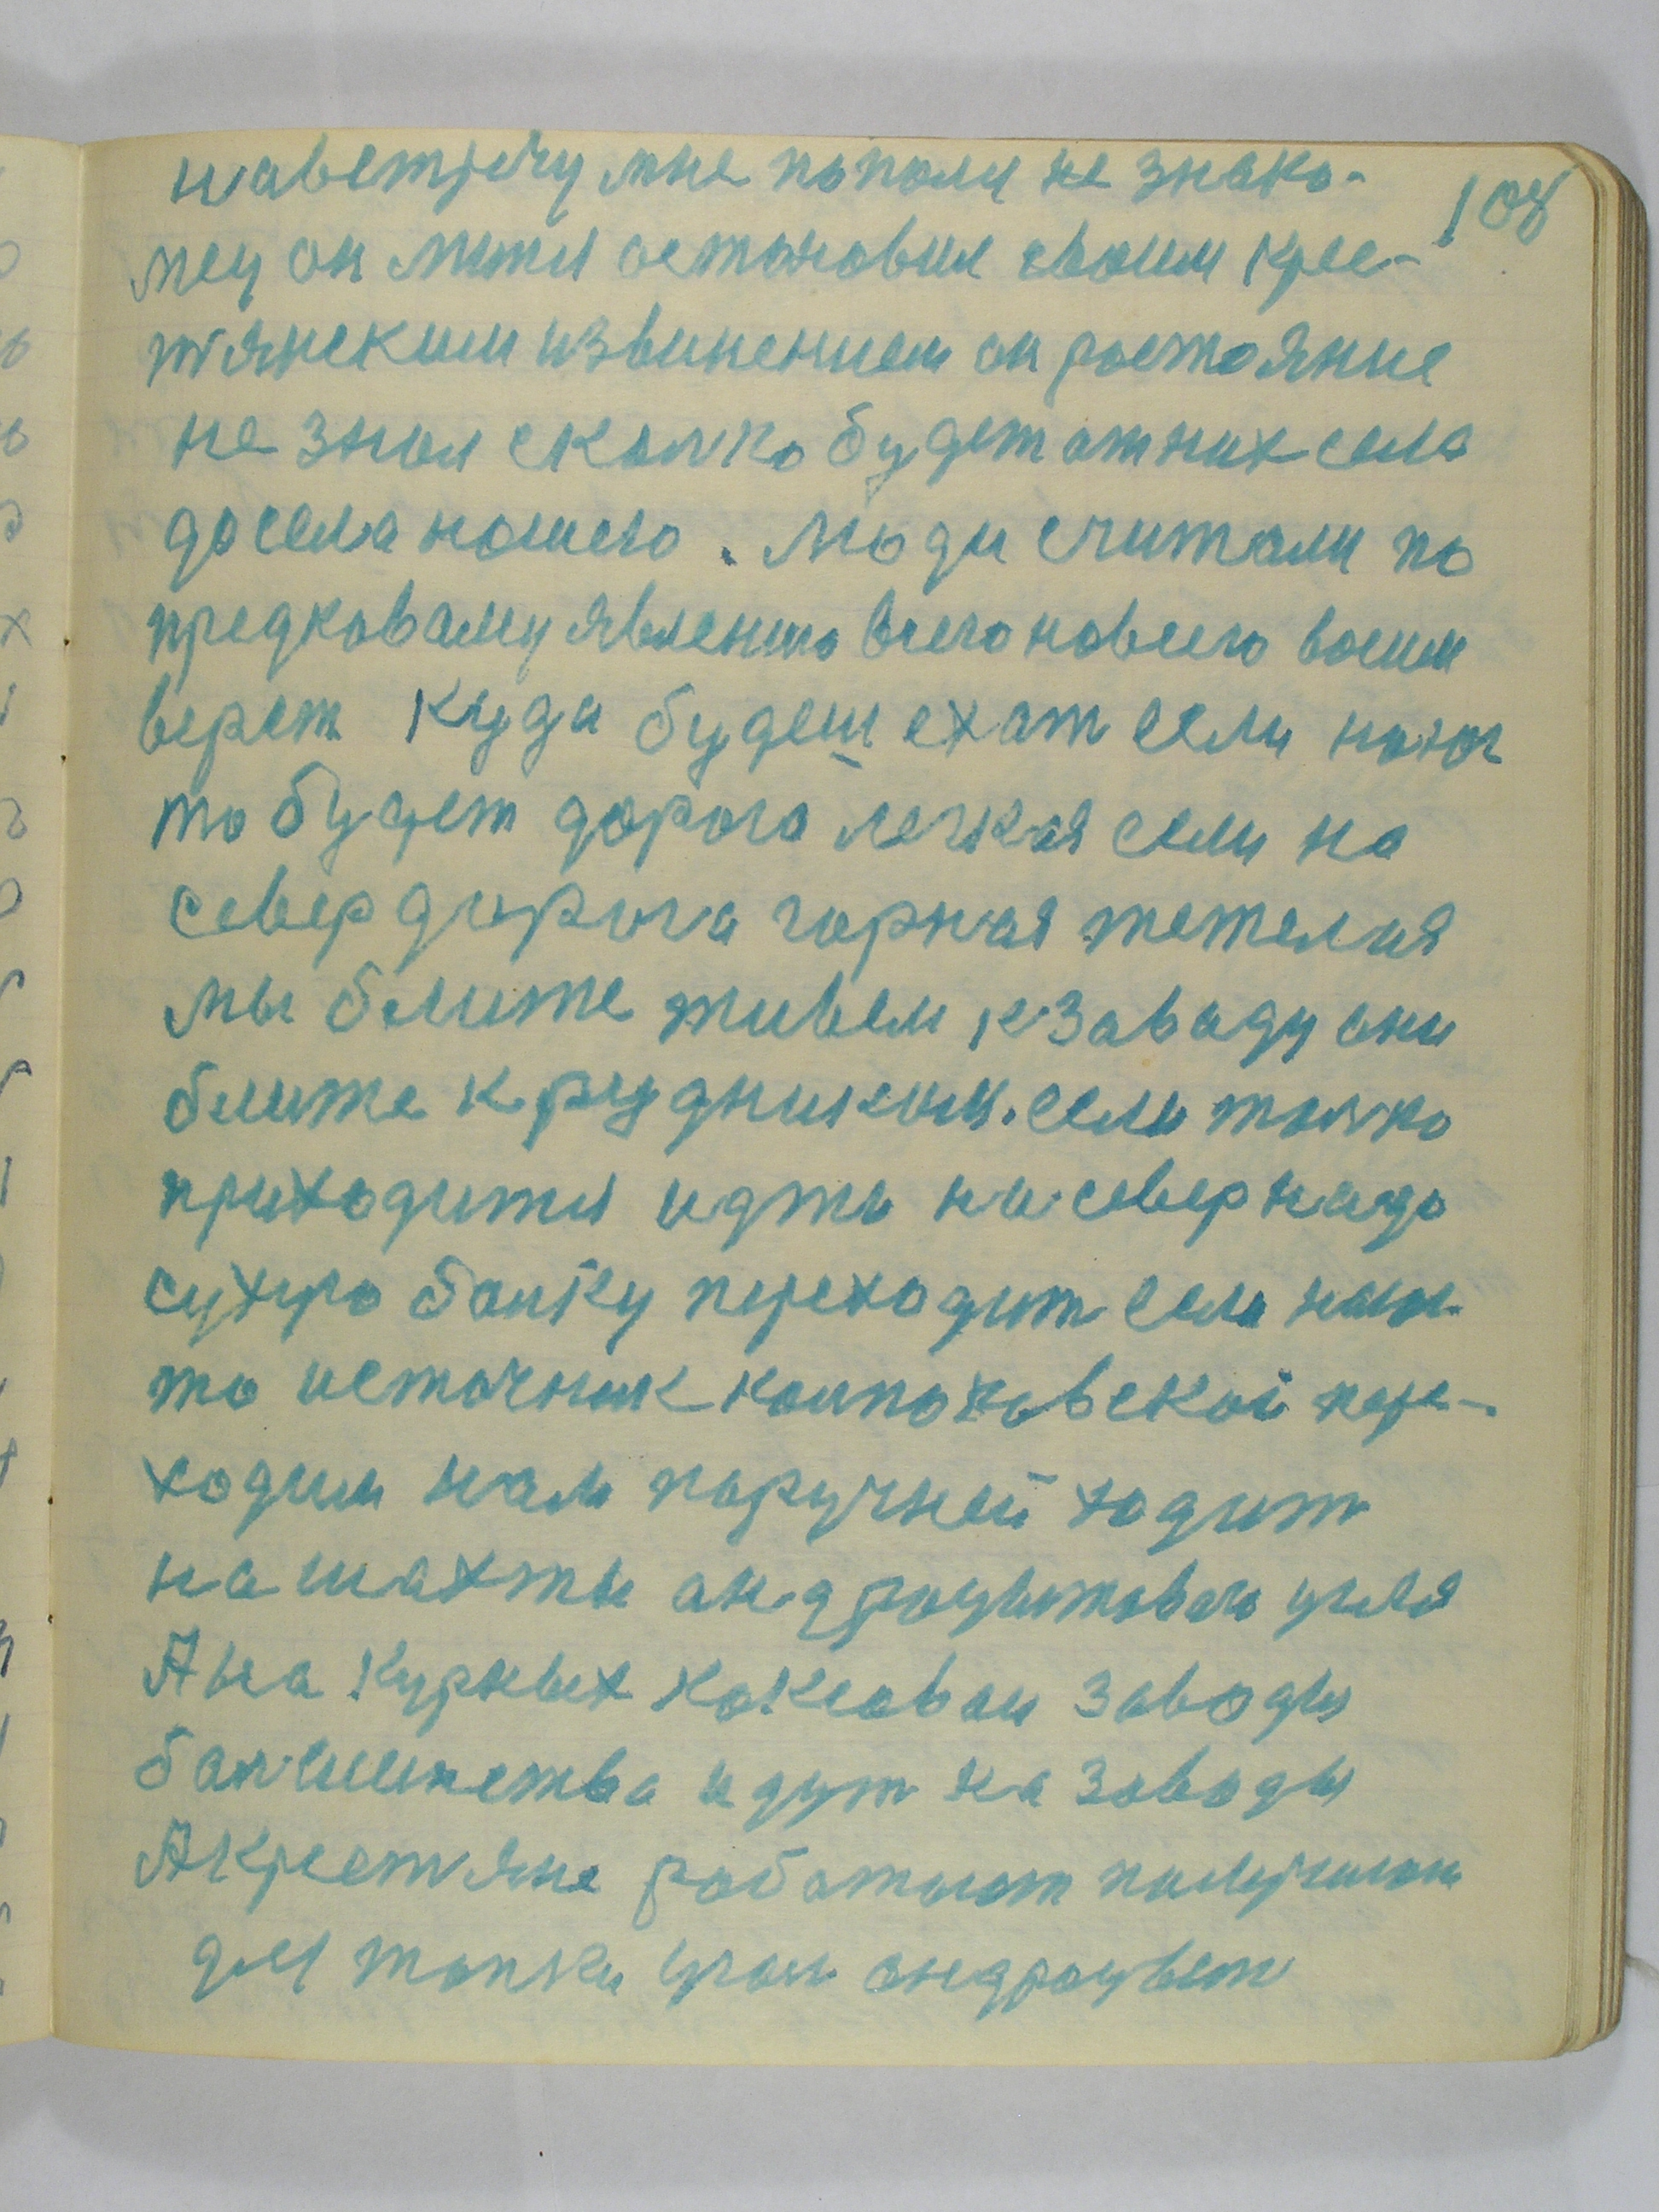 108
навстрєчу мне попали не знако-
мец он миня остановил своим крес-
тянским извинением он ростояние
не знал сколко будет от них села
до села нашего. Люди считали по
предковаму явлению всего новсего восим
верст куда будеш ехат если на юг
то будет дорога легкая если на
север дорога горная тежелая
мы ближе живем к заваду они
ближе к рудникам. если толко
приходится идти на север надо
сухую балку переходит если на юг
то источник
ходим нам поручней ходит
на шахты андроцытового угля
А на курных коксовои заводы
болшинства идут на заводы
А крестяне работают
для топки угол андроцыт